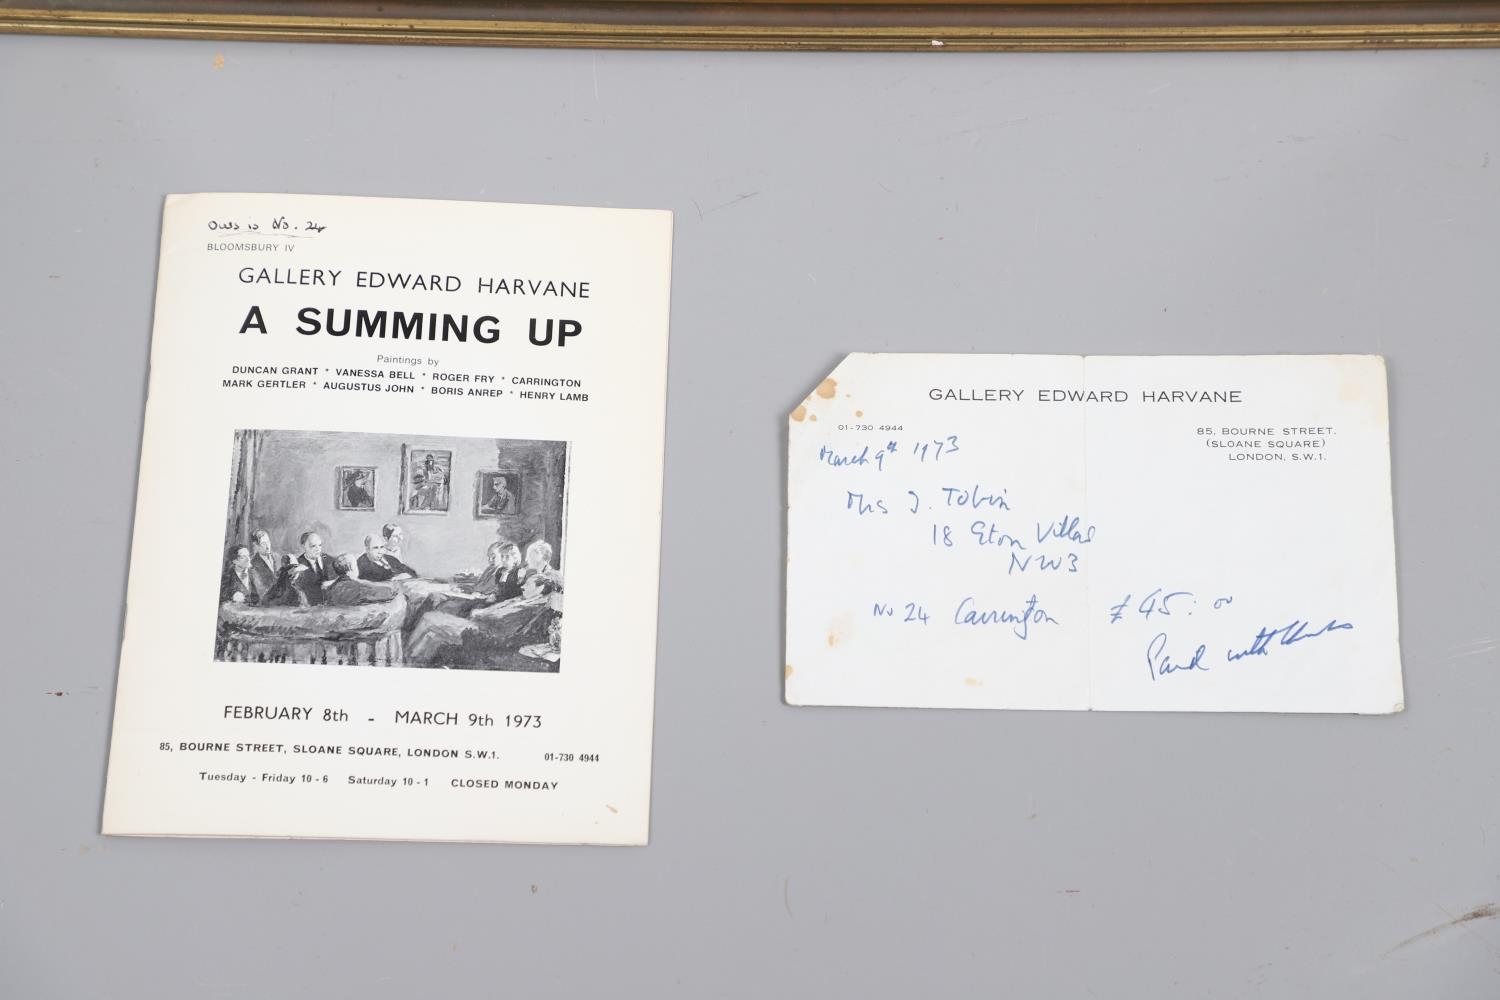 Ours is No. 24
BLOOMSBURY IV
GALLERY EDWARD HARVANE
A SUMMING UP
Paintings by
DUNCAN GRANT * VANESSA BELL * ROGER FRY * CARRINGTON
MARK GERTLER * AUGUSTUS JOHN * BORIS ANREP * HENRY LAMB
FEBRUARY 8th - MARCH 9th 1973
85, BOURNE STREET, SLOANE SQUARE, LONDON S.W.1. 01-730 4944
Tuesday - Friday 10 - 6 Saturday 10 - 1 CLOSED MONDAY
GALLERY EDWARD HARVANE
01-730 4944
85, BOURNE STREET,
(SLOANE SQUARE)
LONDON, S.W.1.
March 9th 1973
Mrs J. Tobin
18 Eton Villas
NW3
No 24 Carrington £45:00
Paid with thanks